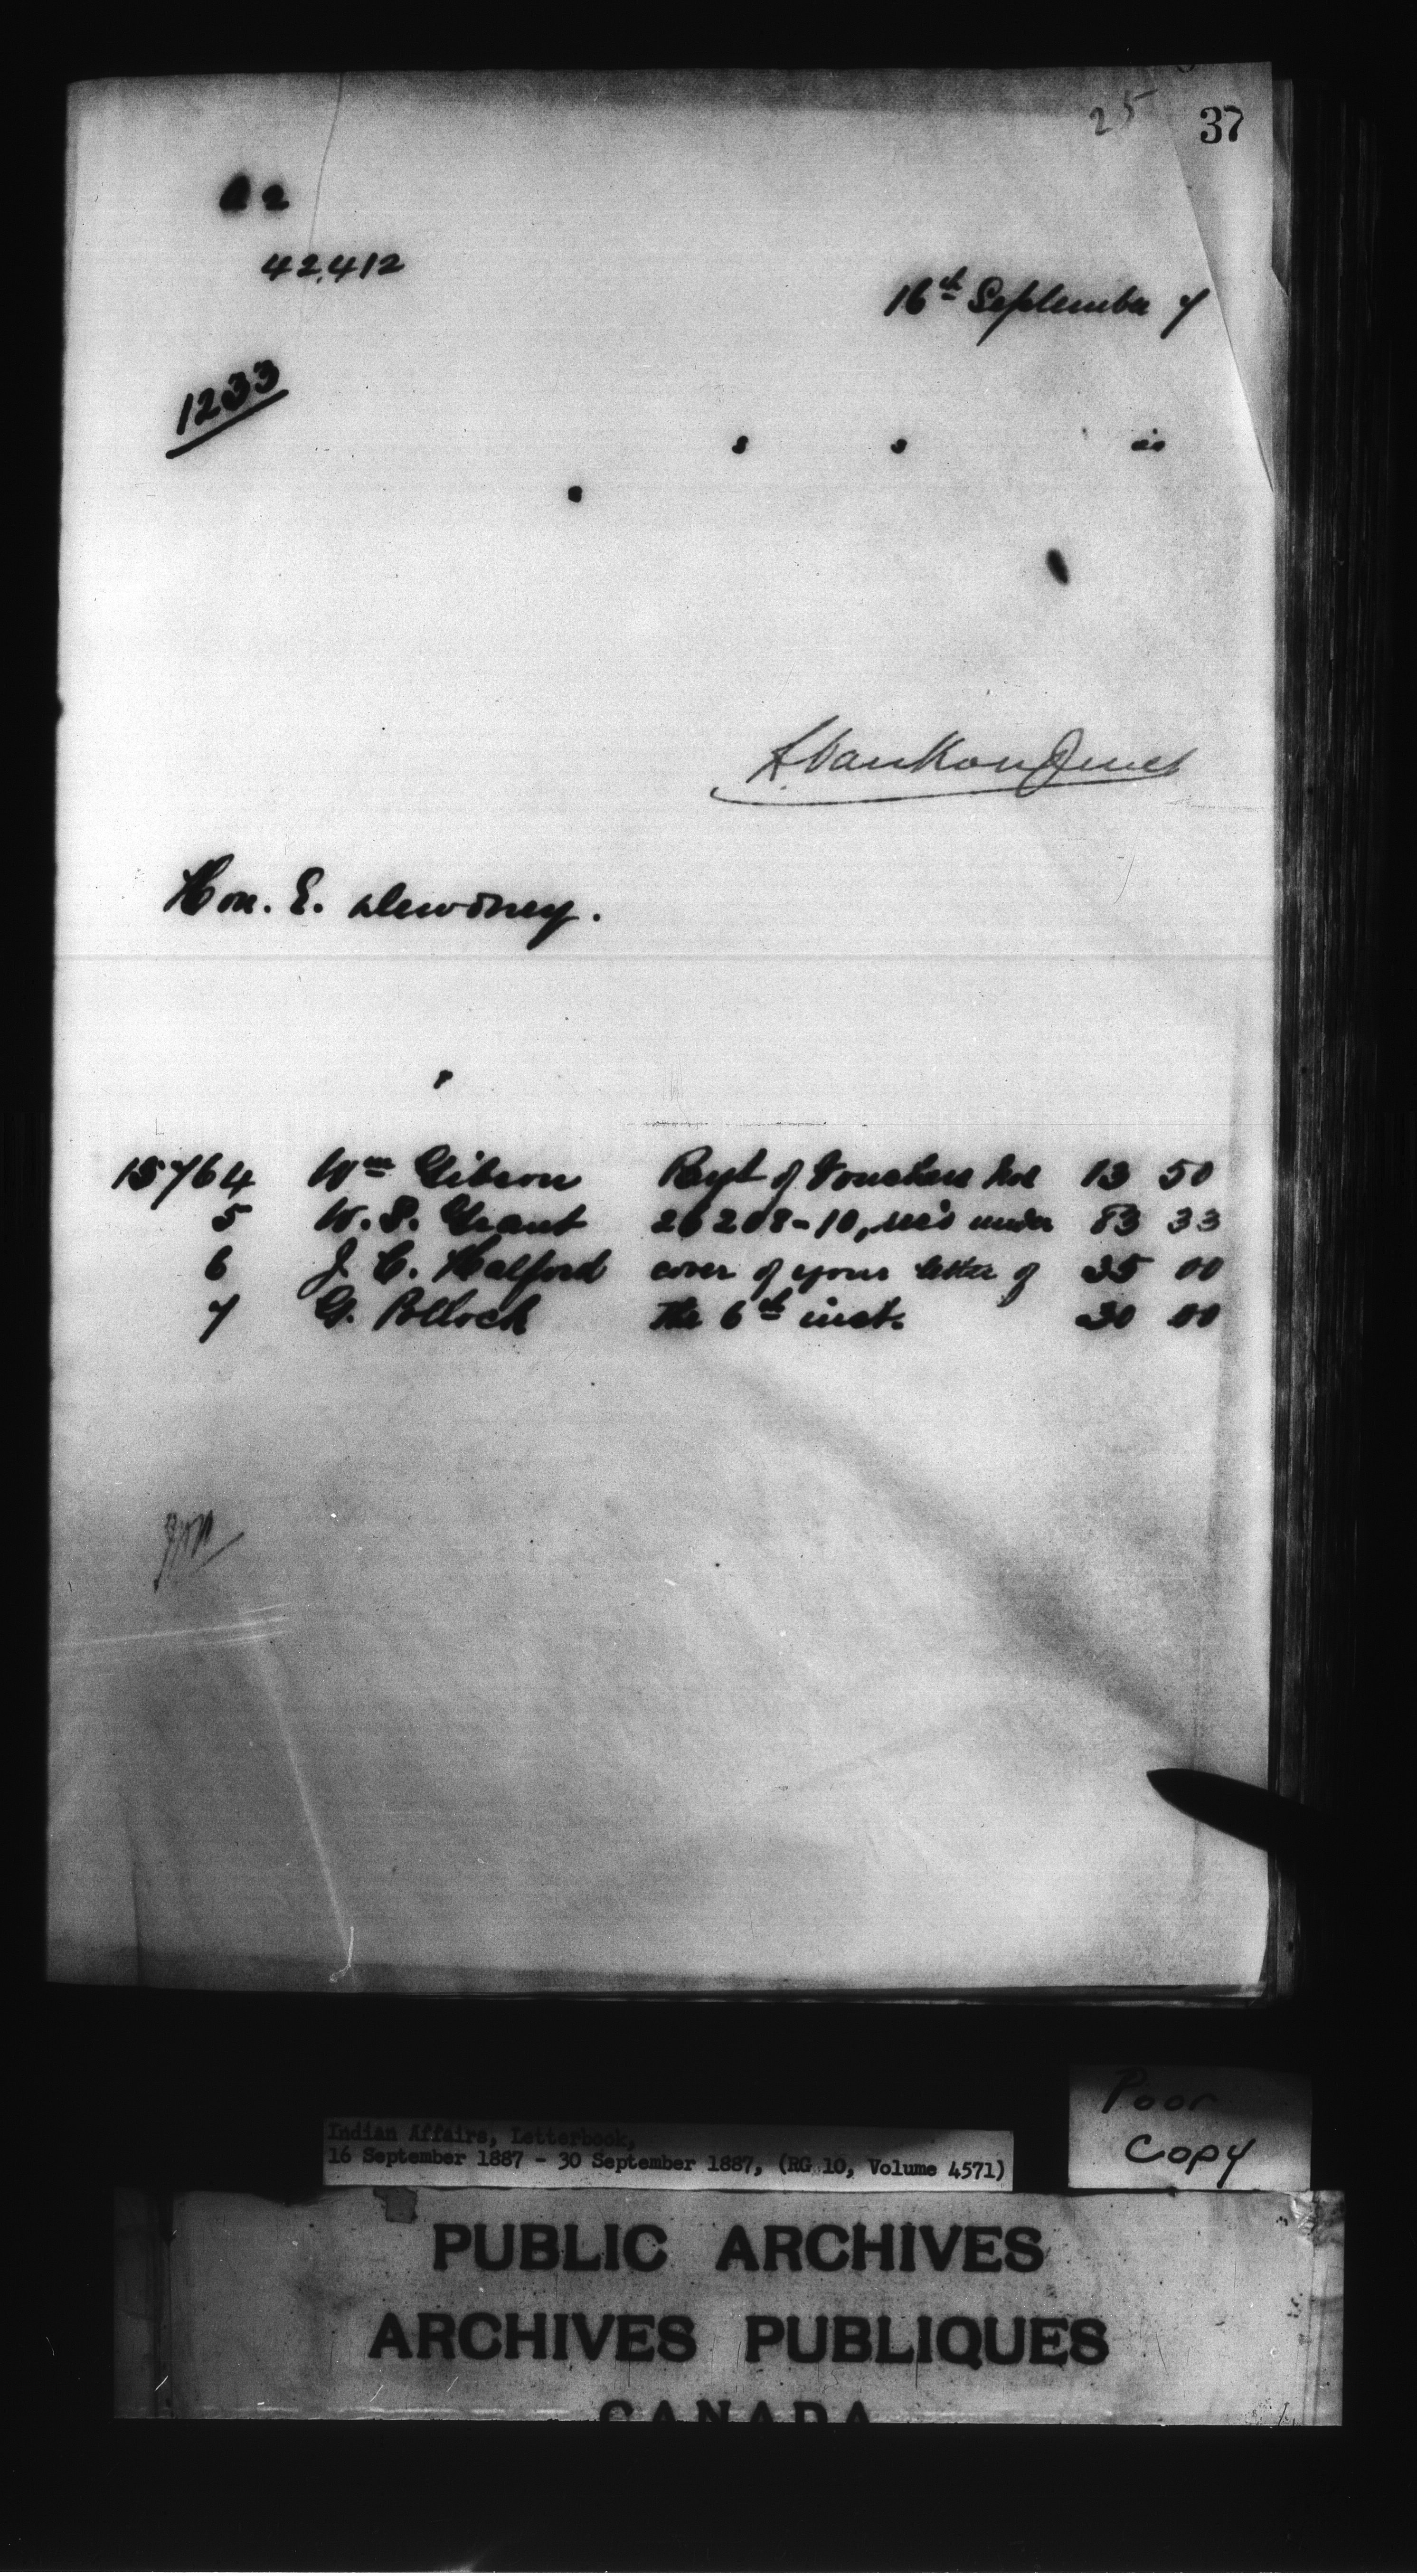 25 37
42.412
16th September 7
1233
s s is
L. VanKoughnet
Hon. E. Dewdney.
15764 Wm Gibson Payt of Vouchers Nos 13 50
5 W. S. Grant 26208-10, rec'd under 83 33
6 J. C. Halford cover of your letter of 35 00
7 G. Pollock the 6th inst. 30 00
Poor
Copy
Indian Affairs, Letterbook,
16 September 1887 - 30 September 1887, (RG 10, Volume 4571)
PUBLIC ARCHIVES
ARCHIVES PUBLIQUES
CANADA